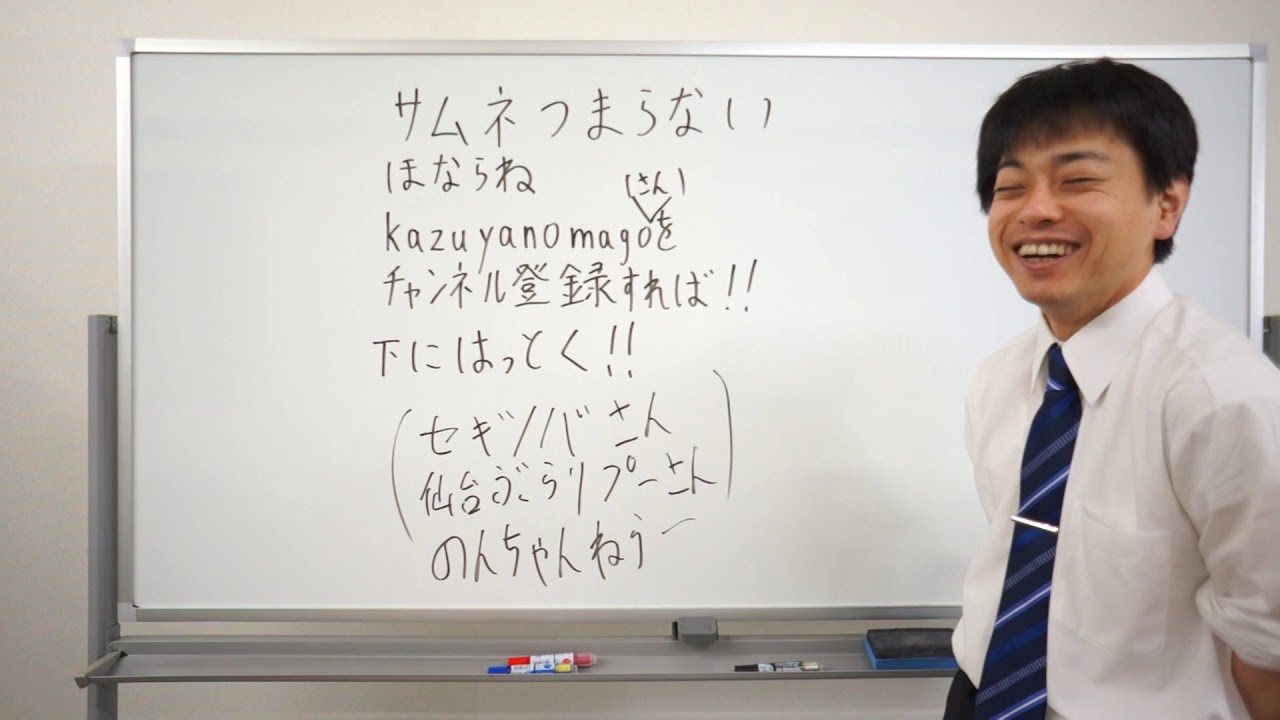 サムネつまらない
ほならね
(さん)
kazuyanomagoを
チャンネル登録すれば!!
下にはっとく!!
(セギノバさん
仙台ぶらりプーさん)
のんちゃんねうー